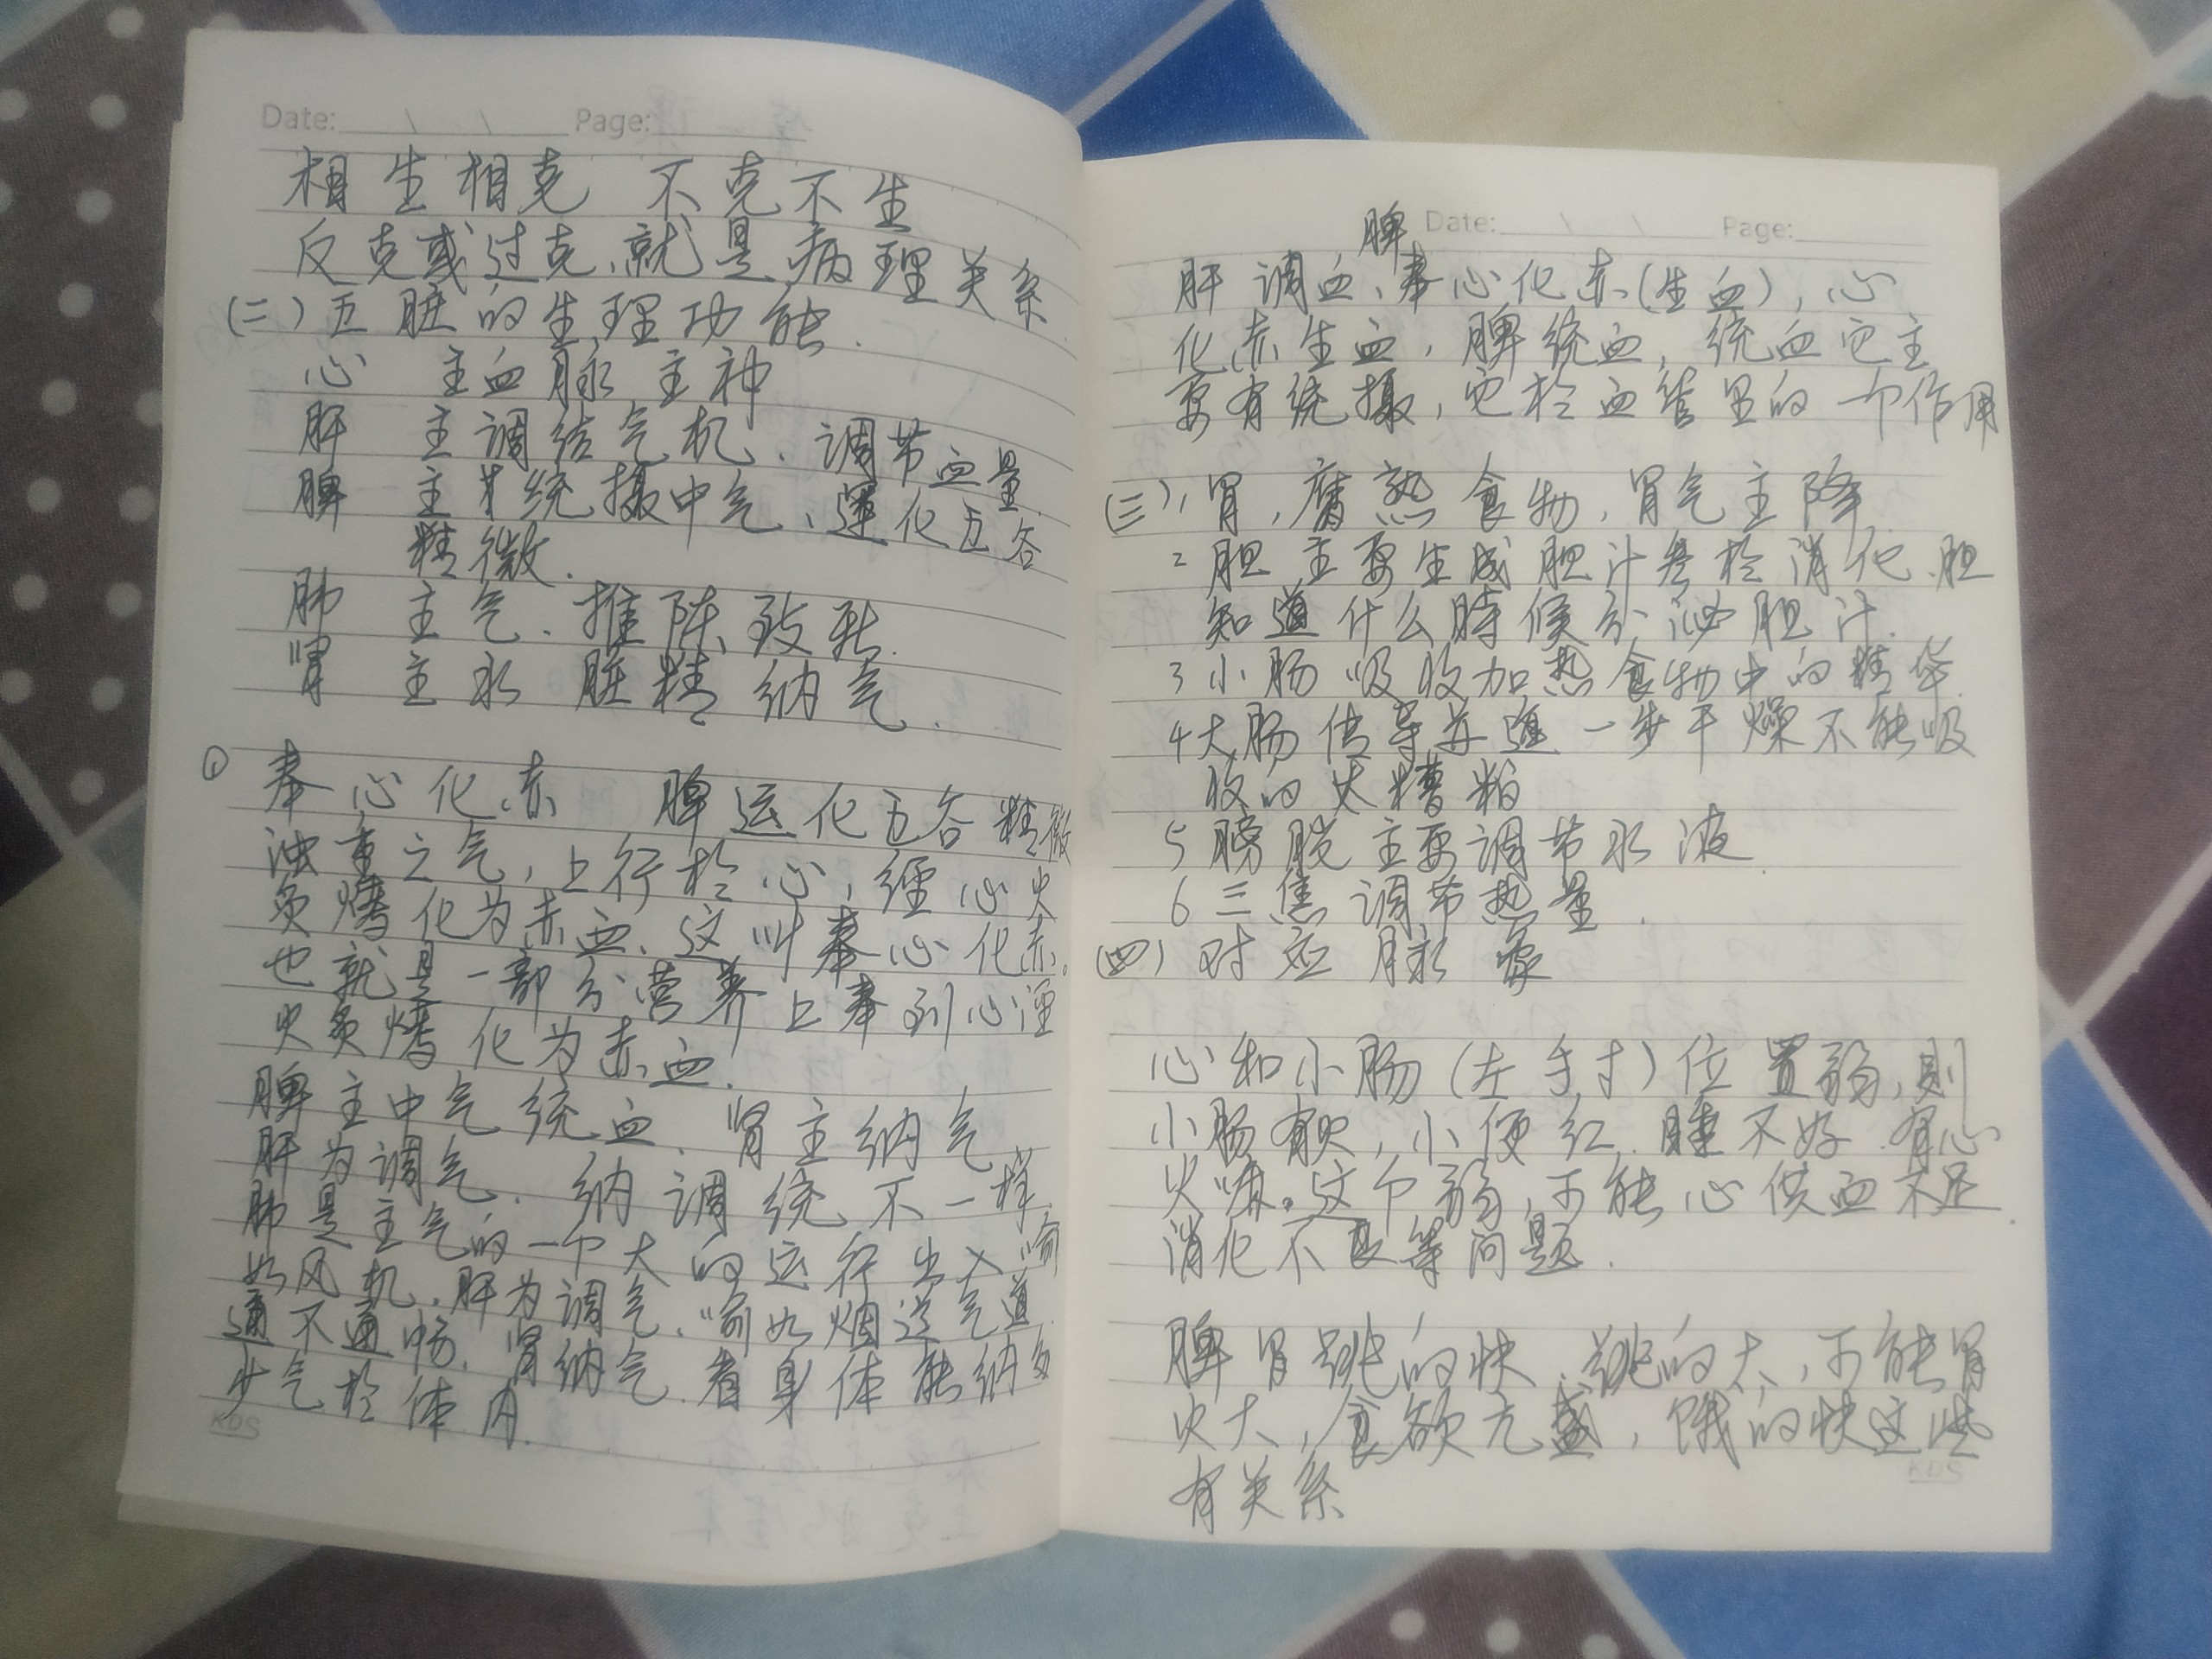 Date: / / Page:
相生相克 不克不生
反克或过克、就是病理关系
(二)五脏的生理功能.
心 主血脉 主神
肝 主调结气机、调节血量
脾 主统摄中气、运化五谷
精微.
肺 主气.推陈致新.
肾 主水 脏精 纳气.
① 奉心化赤 脾运化五谷精微
浊重之气,上行於心,经心火
炙烤化为赤血.这叫奉心化赤。
也就是一部分营养上奉到心经
火炙烤化为赤血.
脾主中气统血.肾主纳气
肝为调气. 纳调统不一样
肺是主气的一个大的运行出入喻
如风机.肝为调气.喻如烟道气道
通不通畅.肾纳气.看身体能纳多
少气於体内.
KDS
Date: \ \ Page:
脾
肝调血、奉心化赤(生血),心
化赤生血,脾统血,统血它主
要有统摄,它於血管里的一个作用
(三)、胃,腐熟食物,胃气主降
2 胆主要生成胆汁参於消化.胆
知道什么时候分泌胆汁.
3 小肠吸收加热食物中的精华.
4 大肠传导并进一步干燥不能吸
收的 糟粕
5 膀胱主要调节水液
6 三焦调节热量.
(四)对应脉象
心和小肠(左手寸)位置弱,则
小肠有 ,小便红.睡不好.有心
火嘛。这个弱,可能心供血不足.
消化不良等问题.
脾胃跳的快.跳的大,可能胃
火大,食欲亢盛,饿的快这些
有关系
KDS